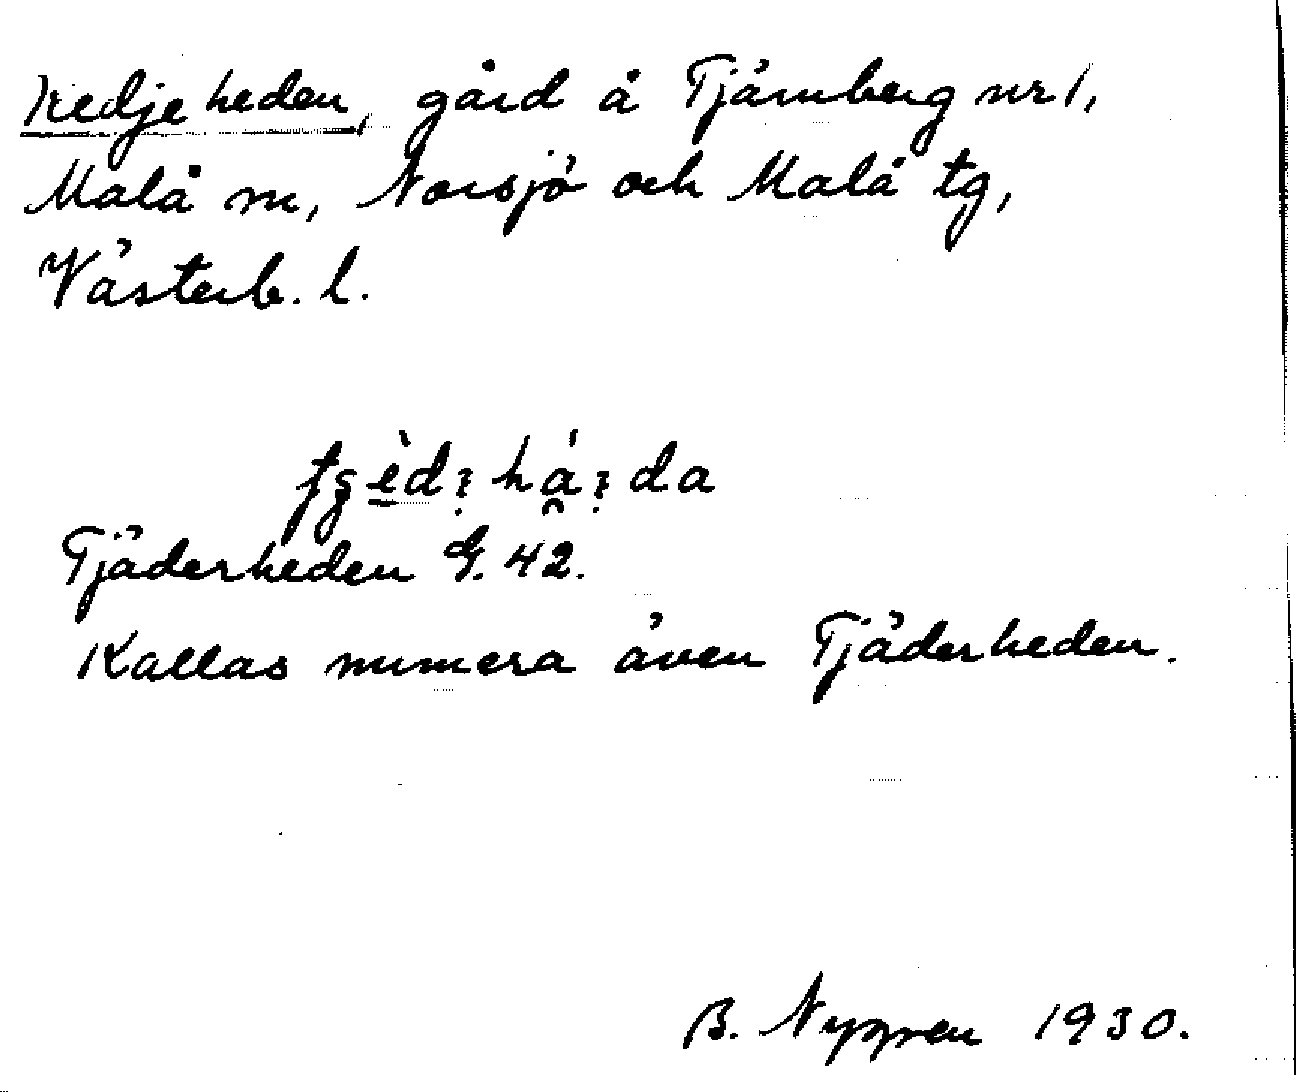 Kedjeheden, gård å Tjärnberg nr 1,
Malå sn, Norsjö och Malå tg,
Västerb. l.
Tjäderheden G. 42.
Kallas numera även Tjäderheden.
B. Nygren 1930.